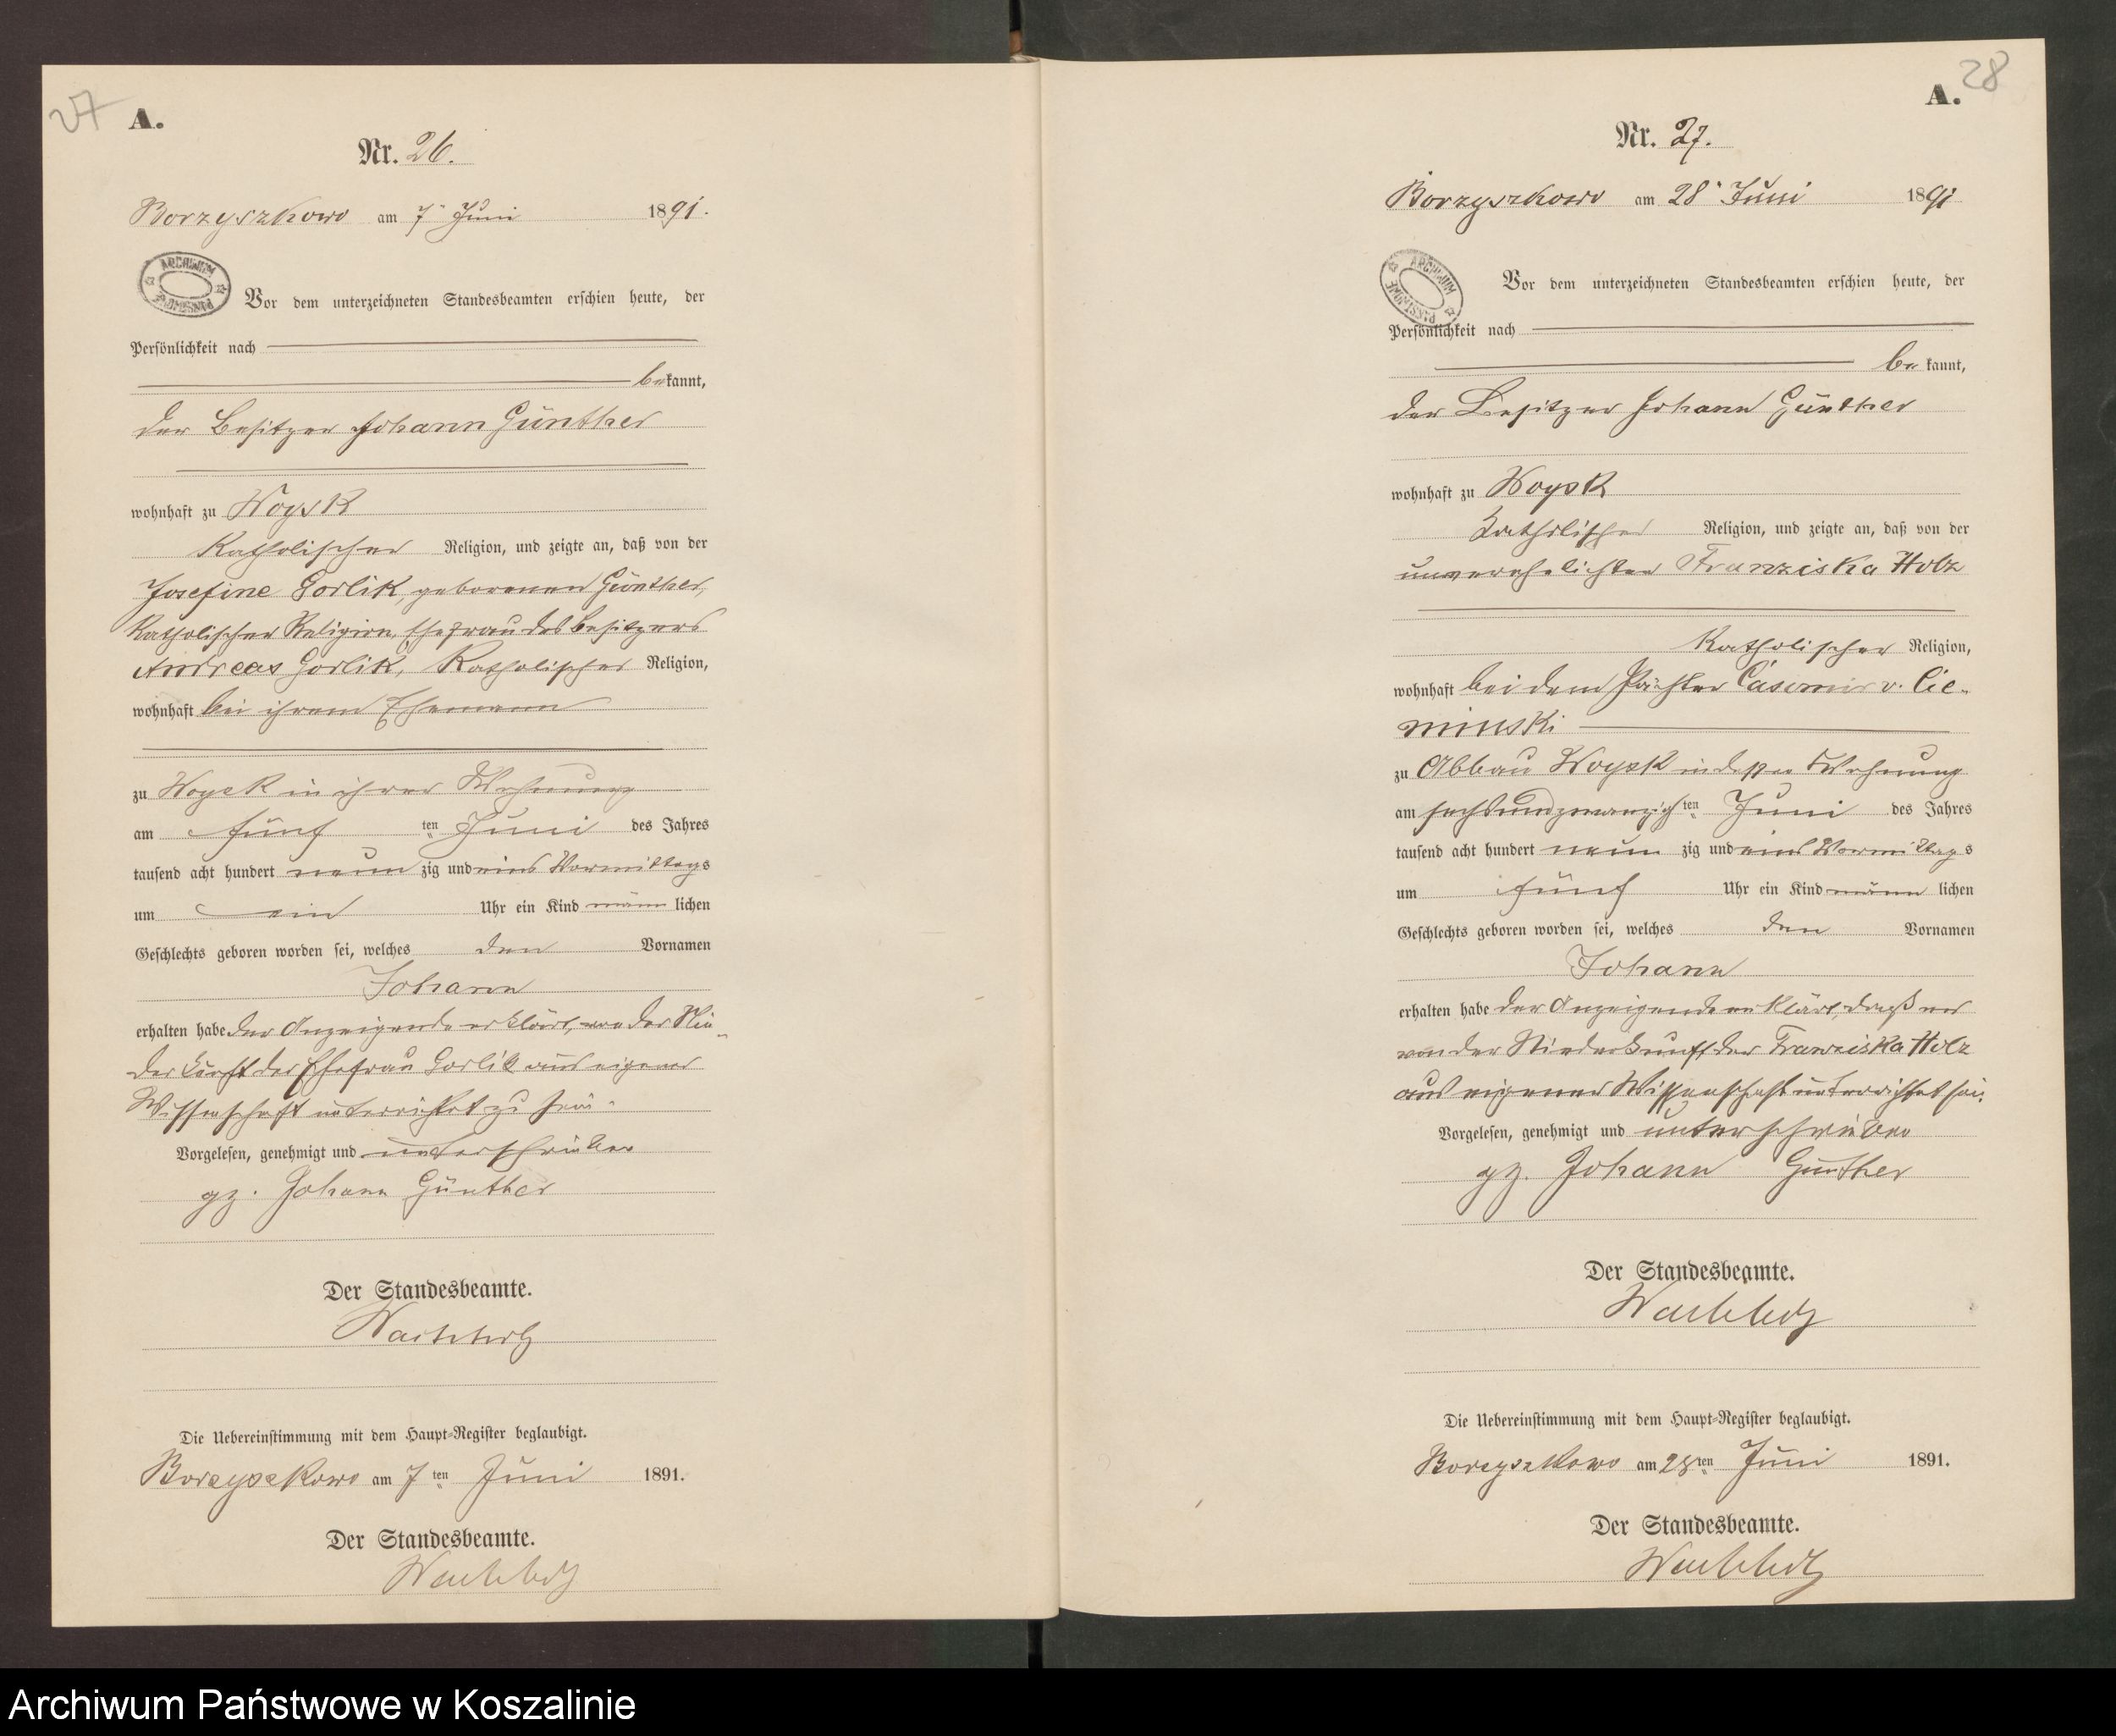 27
A.
Nr. 26.
Borzyszkowo am 7. Juni 1891.
ARCHIWUM PAŃSTWOWE
Vor dem unterzeichneten Standesbeamten erschien heute, der
Persönlichkeit nach
bekannt,
der Besitzer Johann Günther
wohnhaft zu Woysk
katholischer Religion, und zeigte an, daß von der
Josefine Gorlik, geborenen Günther,
katholischer Religion Ehefrau des Besitzers
Andreas Gorlik, katholischer Religion,
wohnhaft bei ihrem Ehemann
zu Woysk in ihrer Wohnung
am fünf ten Juni des Jahres
tausend acht hundert neun zig und eins Vormittags
um ein Uhr ein Kind männlichen
Geschlechts geboren worden sei, welches den Vornamen
Johann
erhalten habe der Anzeigende erklärt, von der Nie-
derkunft der Ehefrau Gorlik aus eigener
Wissenschaft unterrichtet zu sein.
Vorgelesen, genehmigt und unterschrieben
gz. Johann Günther
Der Standesbeamte.
Die Uebereinstimmung mit dem Haupt-Register beglaubigt.
Borzyszkowo am 7 ten Juni 1891.
Der Standesbeamte.
28
A.
Nr. 27.
Borzyszkowo am 28. Juni 1891
ARCHIWUM PAŃSTWOWE
Vor dem unterzeichneten Standesbeamten erschien heute, der
Persönlichkeit nach
bekannt,
der Besitzer Johann Günther
wohnhaft zu Woysk
katholischer Religion, und zeigte an, daß von der
unverehelichten Franziska Holz
katholischer Religion,
wohnhaft bei dem Pächter Casimir v. Cie-
minski
zu Abbau Woysk in dessen Wohnung
am sechsundzwanzigsten Juni des Jahres
tausend acht hundert neun zig und eins Vormittags
um fünf Uhr ein Kind männlichen
Geschlechts geboren worden sei, welches den Vornamen
Johann
erhalten habe der Anzeigende erklärt, daß er
von der Niederkunft der Franziska Holz
aus eigener Wissenschaft unterrichtet sei.
Vorgelesen, genehmigt und unterschrieben
gz. Johann Günther
Der Standesbeamte.
Die Uebereinstimmung mit dem Haupt-Register beglaubigt.
Borzyszkowo am 28 ten Juni 1891.
Der Standesbeamte.
Archiwum Państwowe w Koszalinie